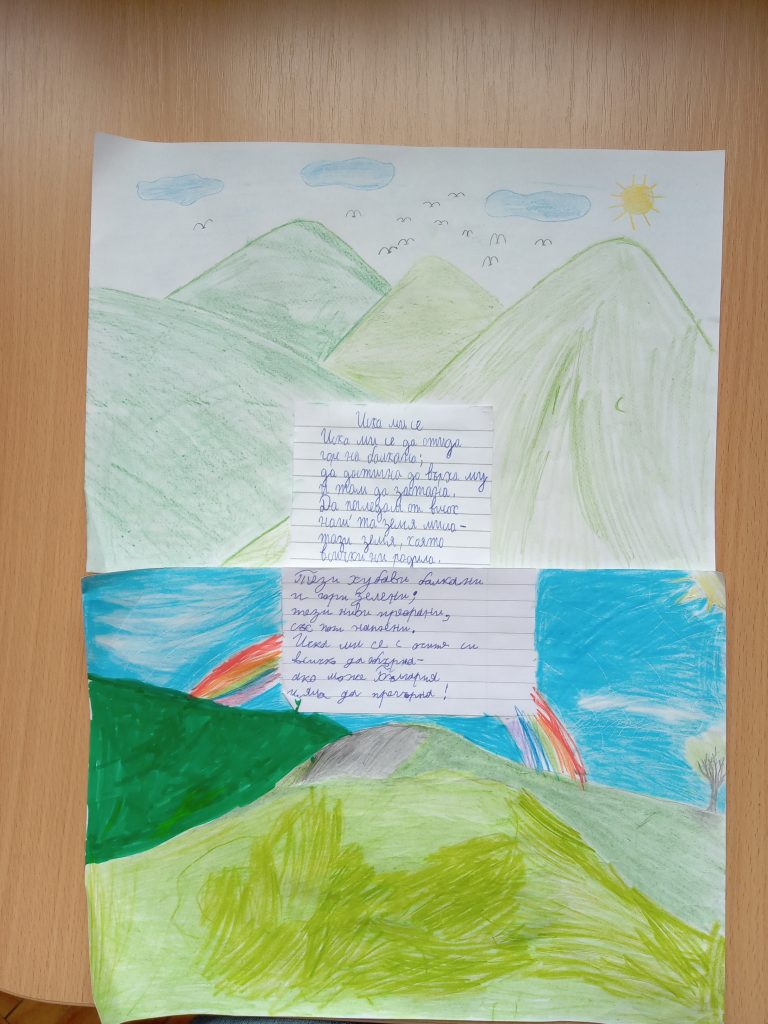 Иска ми се
Иска ми се да отида
горе на балкана;
да достигна до върха му
и там да застана.
Да погледам от висок
наш'та земя мила-
тази земя, която
всички ни родила.
Тези хубави балкани
и гори зелени;
тези ниви преорани,
със пот напоени.
Иска ми се с очите си
всичко да обърна-
ако може България
цяла да прегърна!